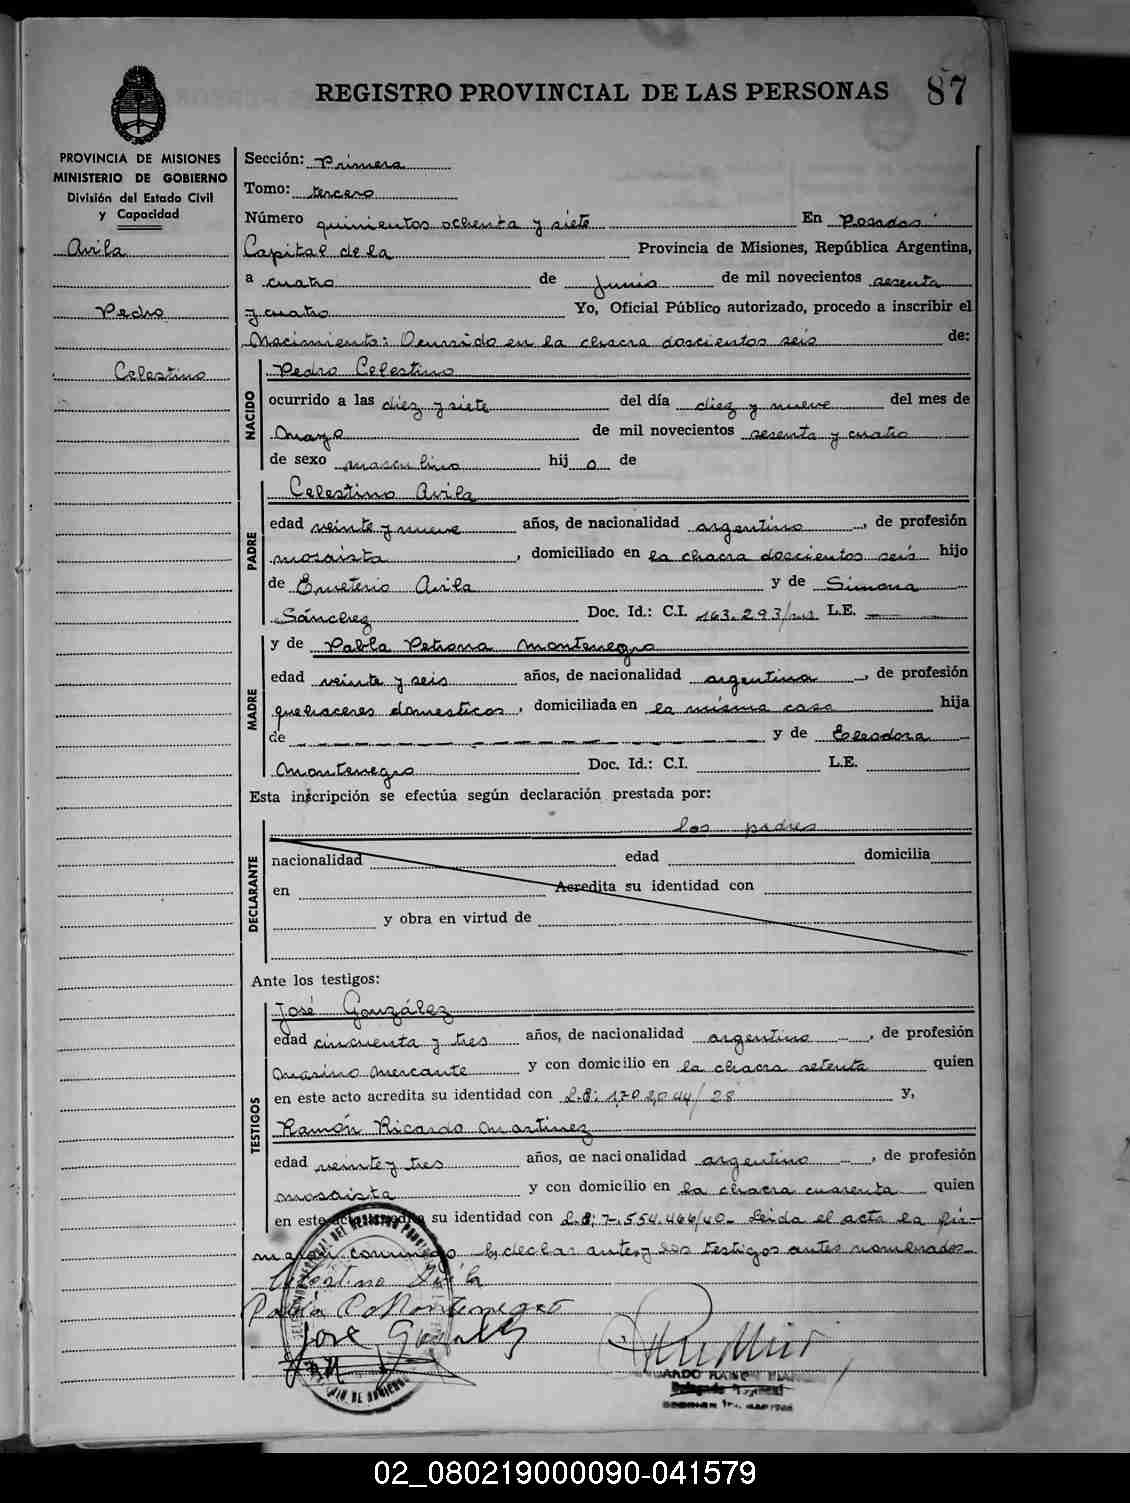 REGISTRO PROVINCIAL DE LAS PERSONAS 87
PROVINCIA DE MISIONES
MINISTERIO DE GOBIERNO
División del Estado Civil
y Capacidad
Avila
Pedro
Celestino
Sección: Primera
Tomo: tercero
Número quinientos ochenta y siete En Posadas
Capital de la Provincia de Misiones, República Argentina,
a cuatro de Junio de mil novecientos sesenta
y cuatro Yo, Oficial Público autorizado, procedo a inscribir el
Nacimiento: Ocurrido en la chacra doscientos seis de:
NACIDO
Pedro Celestino
ocurrido a las diez y siete del día diez y nueve del mes de
Mayo de mil novecientos sesenta y cuatro
de sexo masculino hij o de
PADRE
Celestino Avila
edad veinte y nueve años, de nacionalidad argentino, de profesión
mosaista, domiciliado en la chacra doscientos seis hijo
de Emeterio Avila y de Simona
Sánchez Doc. Id.: C.I. 163.293/ L.E.
MADRE
y de Pabla Petrona Montenegro
edad veinte y seis años, de nacionalidad argentina, de profesión
quehaceres domesticos, domiciliada en la misma casa hija
de y de Eleodora
Montenegro Doc. Id.: C.I. L.E.
Esta inscripción se efectúa según declaración prestada por:
DECLARANTE
los padres
nacionalidad edad domicilia
en Acredita su identidad con
y obra en virtud de
Ante los testigos:
TESTIGOS
José González
edad cincuenta y tres años, de nacionalidad argentino, de profesión
Marino Mercante y con domicilio en la chacra setenta quien
en este acto acredita su identidad con L.E: 1,202,044/28 y,
Ramón Ricardo Martinez
edad veinte y tres años, de nacionalidad argentino, de profesión
mosaista y con domicilio en la chacra cuarenta quien
en este acto acredita su identidad con L.E; 7.554.466/40- Leida el acta la fir-
man conmigo los testigos antes nombrados
Celestino Avila
Pabla P. Montenegro
José González
02_080219000090-041579